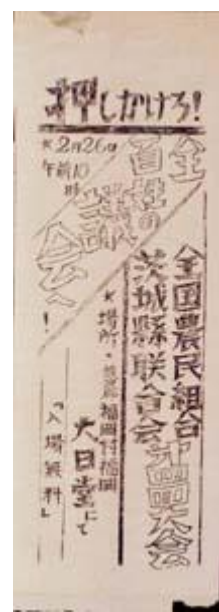 押しかけろ!
★2月26日
午前10時
全百姓の
議会へ!
全国農民組合
茨城縣联合会第四回大会
★場所・
福岡村福岡
大日堂にて
「入場無料」